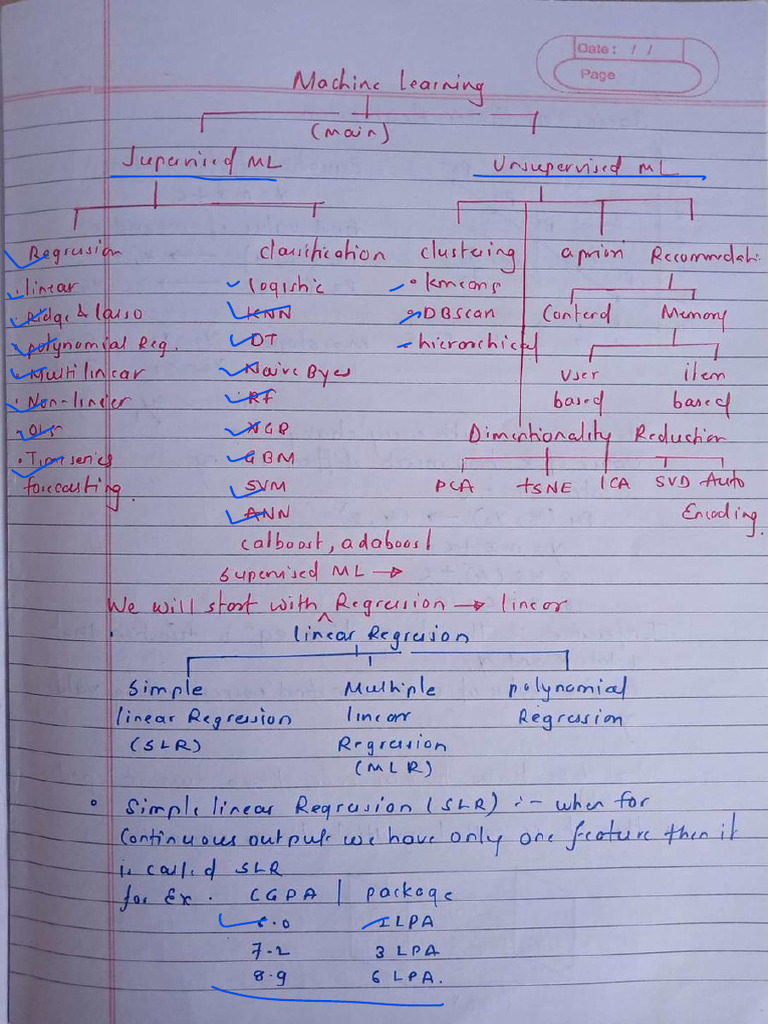 Date : / /
Page
Machine Learning
(main)
Supervised ML Unsupervised ML
Regression classification clustering apriori Recommodati.
. linear logistic • kmeans Contend Memory
. Ridge & lasso KNN DBscan
. polynomial Reg. DT hierarchical User item
. Multilinear Naive Byes based based
. Non-linear RF
. OLS XGB Dimentionality Reduction
. Time series GBM PCA tSNE ICA SVD Auto
forecasting. SVM Encoding.
ANN
catboost, adaboost
Supervised ML →
We will start with ^ Regression → linear
linear Regression
Simple Multiple polynomial
linear Regression linear Regression
(SLR) Regression
(MLR)
• Simple linear Regression (SLR) :- when for
Continuous output we have only one feature then it
is called SLR
for Ex. CGPA | package
6.0 1 LPA
7.2 3 LPA
8.9 6 LPA.